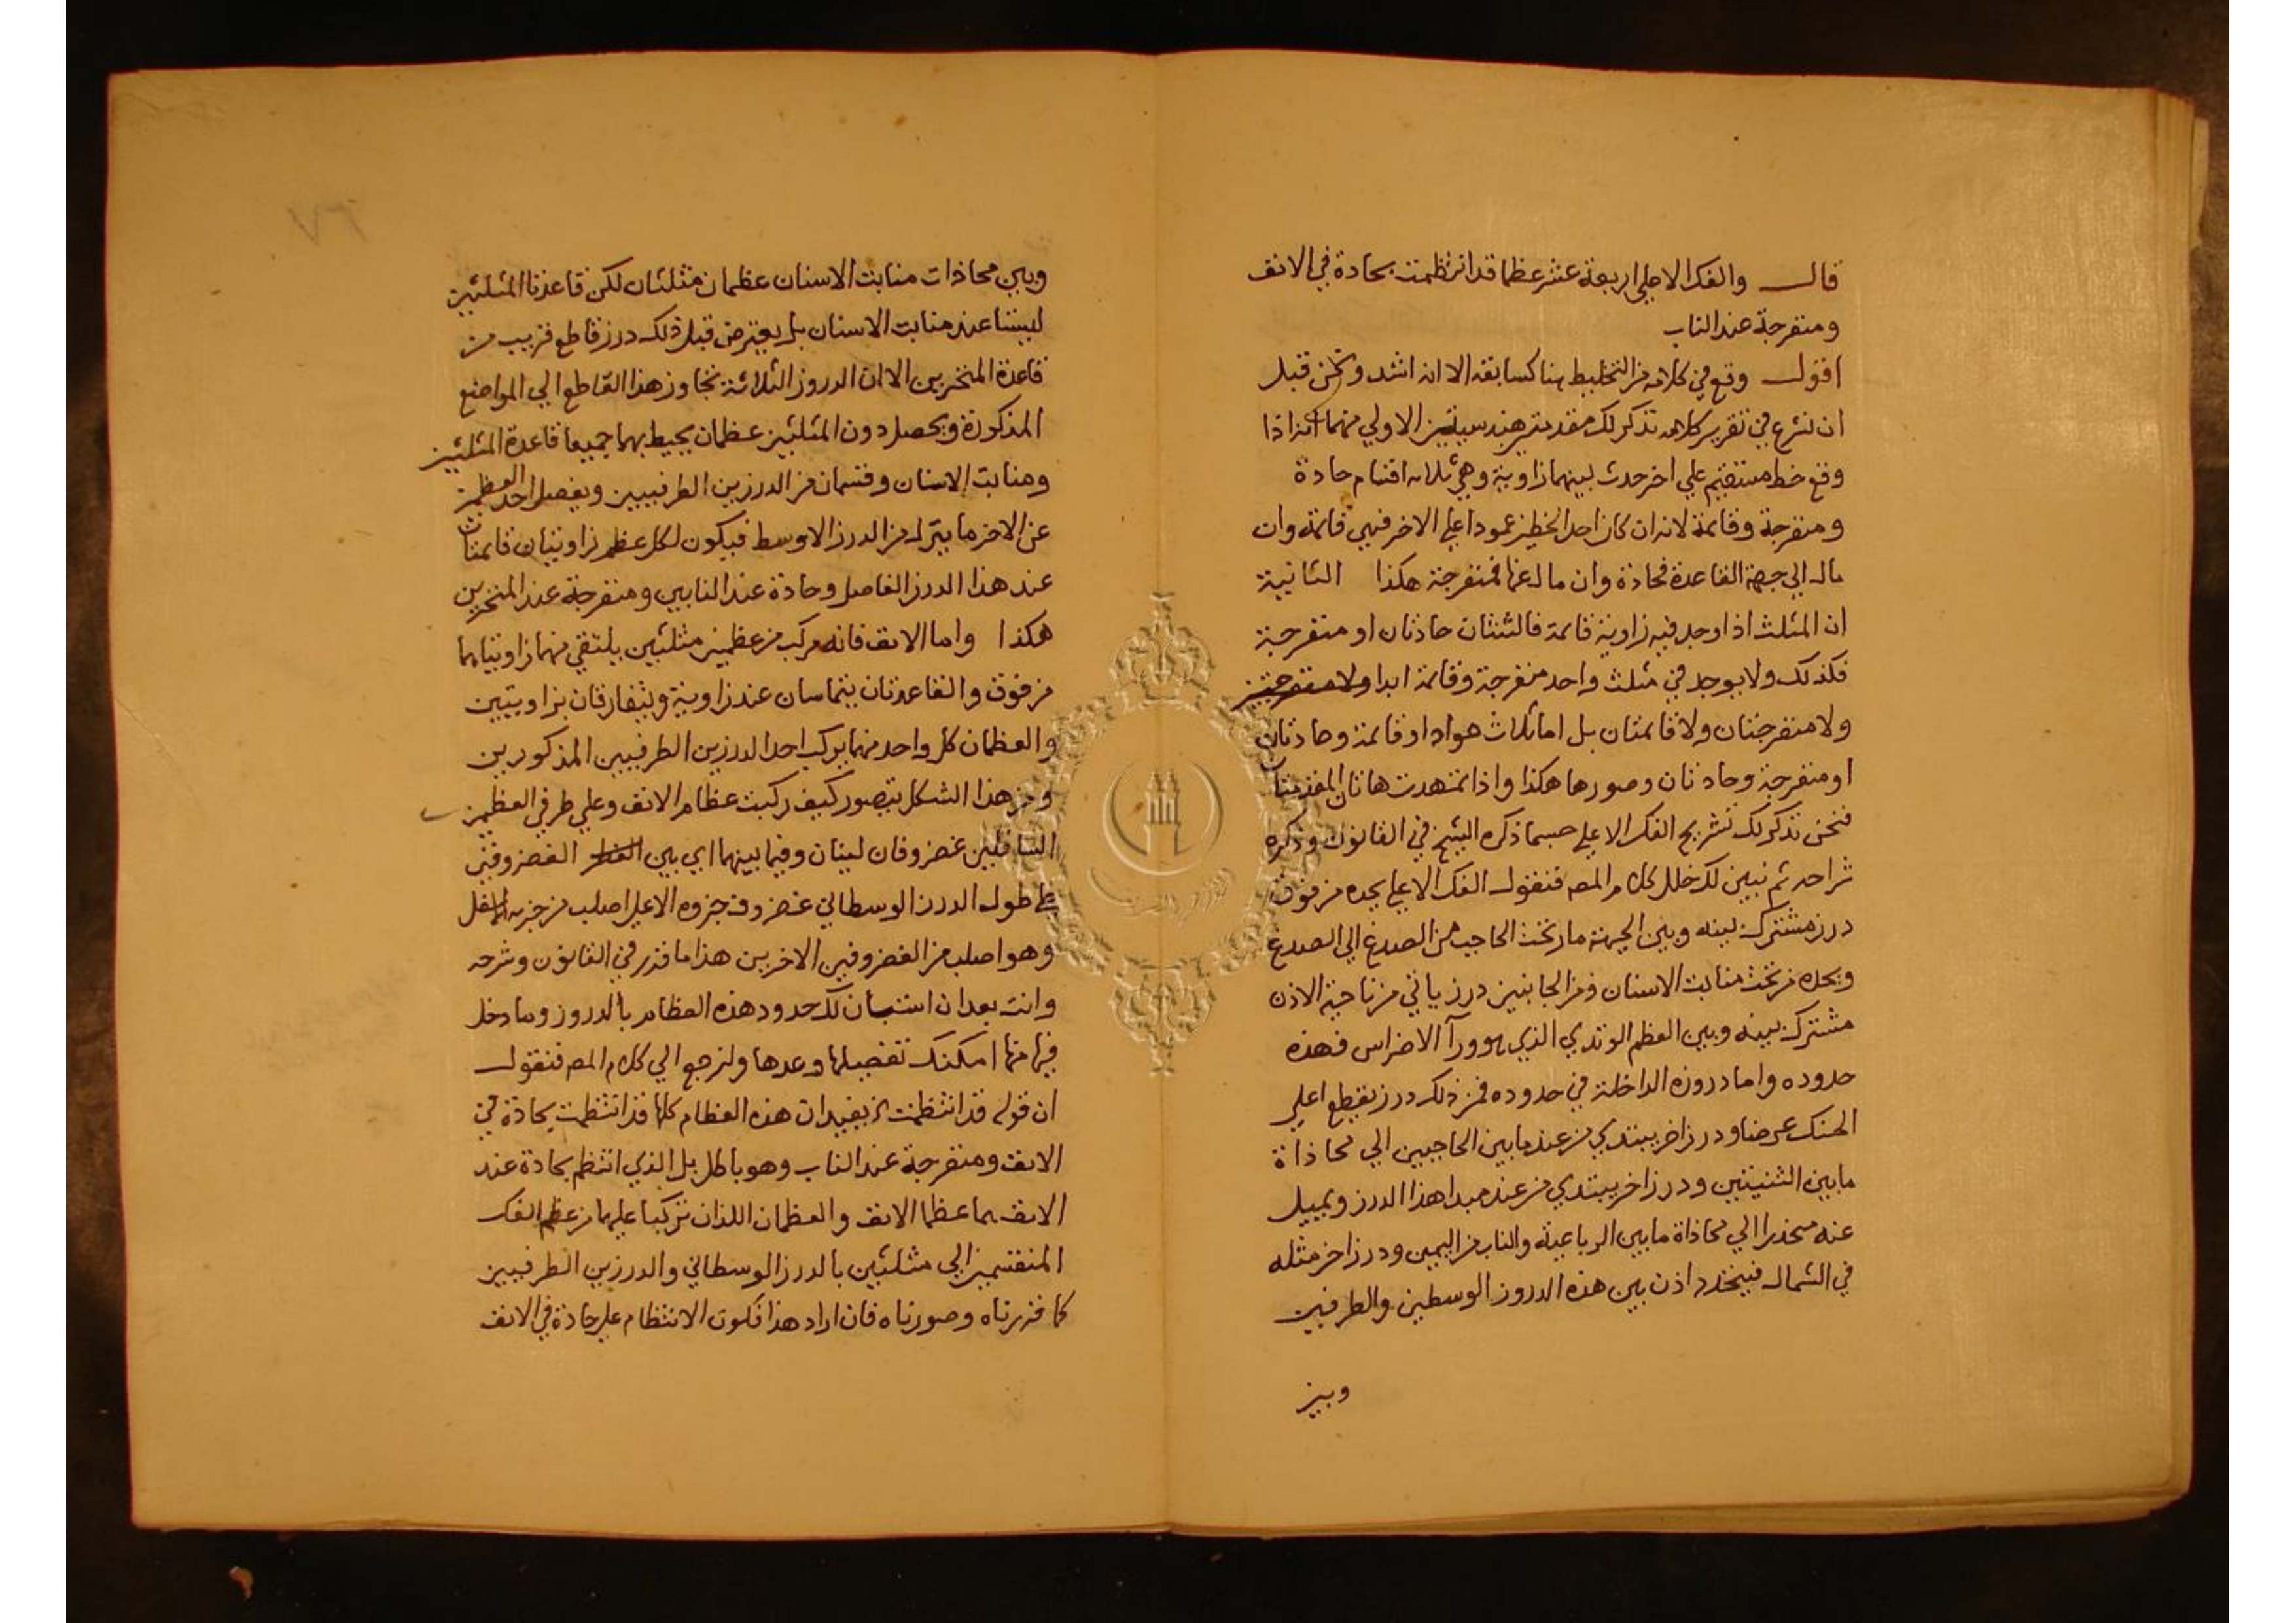 قال والفك الاعلي اربعة عشر عظما قد انتظمت بحادة في الانف
ومنفرجة عند الناب
اقول وقع في كلامه من التخليط هنا كسابقه الا انه اشد ونحن قبل
ان نشرع في تقرير كلامه نذكر لك مقدمتين هندسيتين الاولي منهما انه اذا
وقع خط مستقيم علي اخر حدث بينهما زاوية وهي ثلاثه اقسام حادة
ومنفرجة وقائمة لانه ان كان احد الخطين عمودا علي الاخر فهي قائمة وان
مال الي جهة القاعدة فحادة وان مال عنها فمنفرجة هكذا الثانية
ان المثلث اذا وجد فيه زاوية قائمة فالثنتان حادتان او منفرجة
فكذلك ولا يوجد في مثلث واحد منفرجة وقائمة ابدا ولا منفرجتين
ولا منفرجتان ولا قائمتان بل اما ثلاث حواد او قائمة وحادتان
او منفرجة وحادتان وصورها هكذا واذا تمهدت هاتان المقدمتان
فنحن نذكر لك تشريح الفك الاعلي حسبما ذكره الشيخ في القانون وذكره
شراحه ثم نبين لك خلل كلام المصـ فنقول الفك الاعلي يحده من فوق
درز مشترك بينه وبين الجبهة مار تحت الحاجب من الصدغ الي الصدغ
ويحده من تحت منابت الاسنان ومن الجانبين درز ياتي من ناحية الاذن
مشترك بينه وبين العظم الوتدي الذي هو ورآ الاضراس فهذه
حدوده واما دروزه الداخلة في حدوده فمن ذلك درز يقطع اعلي
الحنك عرضا ودرز اخر يبتدي من عند ما بين الحاجبين الي محاذاة
ما بين الثنيتين ودرز اخر يبتدي من عند مبدا هذا الدرز ويميل
عنه منحدرا الي محاذاة ما بين الرباعية والناب من اليمين ودرز اخر مثله
في الشمال فيتحدد اذن بين هذه الدروز الوسطين والطرفين
وبين
٣٧
وبين محاذات منابت الاسنان عظمان مثلثان لكن قاعدتا المثلثين
ليستا عند منابت الاسنان بل يعترض قبل ذلك درز قاطع قريب من
قاعدة المنخرين الا ان الدروز الثلاثة تجاوز هذا القاطع الي المواضع
المذكورة ويحصل دون المثلثين عظمان يحيط بهما جميعا قاعدة المثلثين
ومنابت الاسنان وقسمان من الدرزين الطرفيين ويفصل احد العظمين
عن الاخر ما ينزل من الدرز الاوسط فيكون لكل عظم زاويتان قائمتان
عند هذا الدرز الفاصل وحادة عند النابين ومنفرجة عند المنخرين
هكذا واما الانف فانه مركب من عظمين مثلثين يلتقي منهما زاويتاهما
من فوق والقاعدتان يتماسان عند زاوية ويتفارقان بزاويتين
والعظمان كل واحد منهما يركب احد الدرزين الطرفيين المذكورين
ومن هذا الشكل يتصور كيف ركبت عظام الانف وعلي طرفي العظمين
السافلين غضروفان لينان وفيما بينهما اي بين الغضروفين
علي طول الدرز الوسطاني غضروف جزوه الاعلي اصلب من جزيه الاسفل
وهو اصلب من الغضروفين الاخرين هذا ما قرر في القانون وشرحه
وانت بعد ان استبان لك حدود هذه العظام بالدروز وما دخل
فيها منها امكنك تفصيلها وعدها ولنرجع الي كلام المصـ فنقول
ان قوله قد انتظمت يفيد ان هذه العظام كلها قد انتظمت بحادة في
الانف ومنفرجة عند الناب وهو باطل بل الذي انتظم بحادة عند
الانف هما عظما الانف والعظمان اللذان تركبا عليهما من عظم الفك
المنقسمين الي مثلثين بالدرز الوسطاني والدرزين الطرفيين
كما قررناه وصورناه فان اراد هذا فكون الانتظام علي حادة في الانف